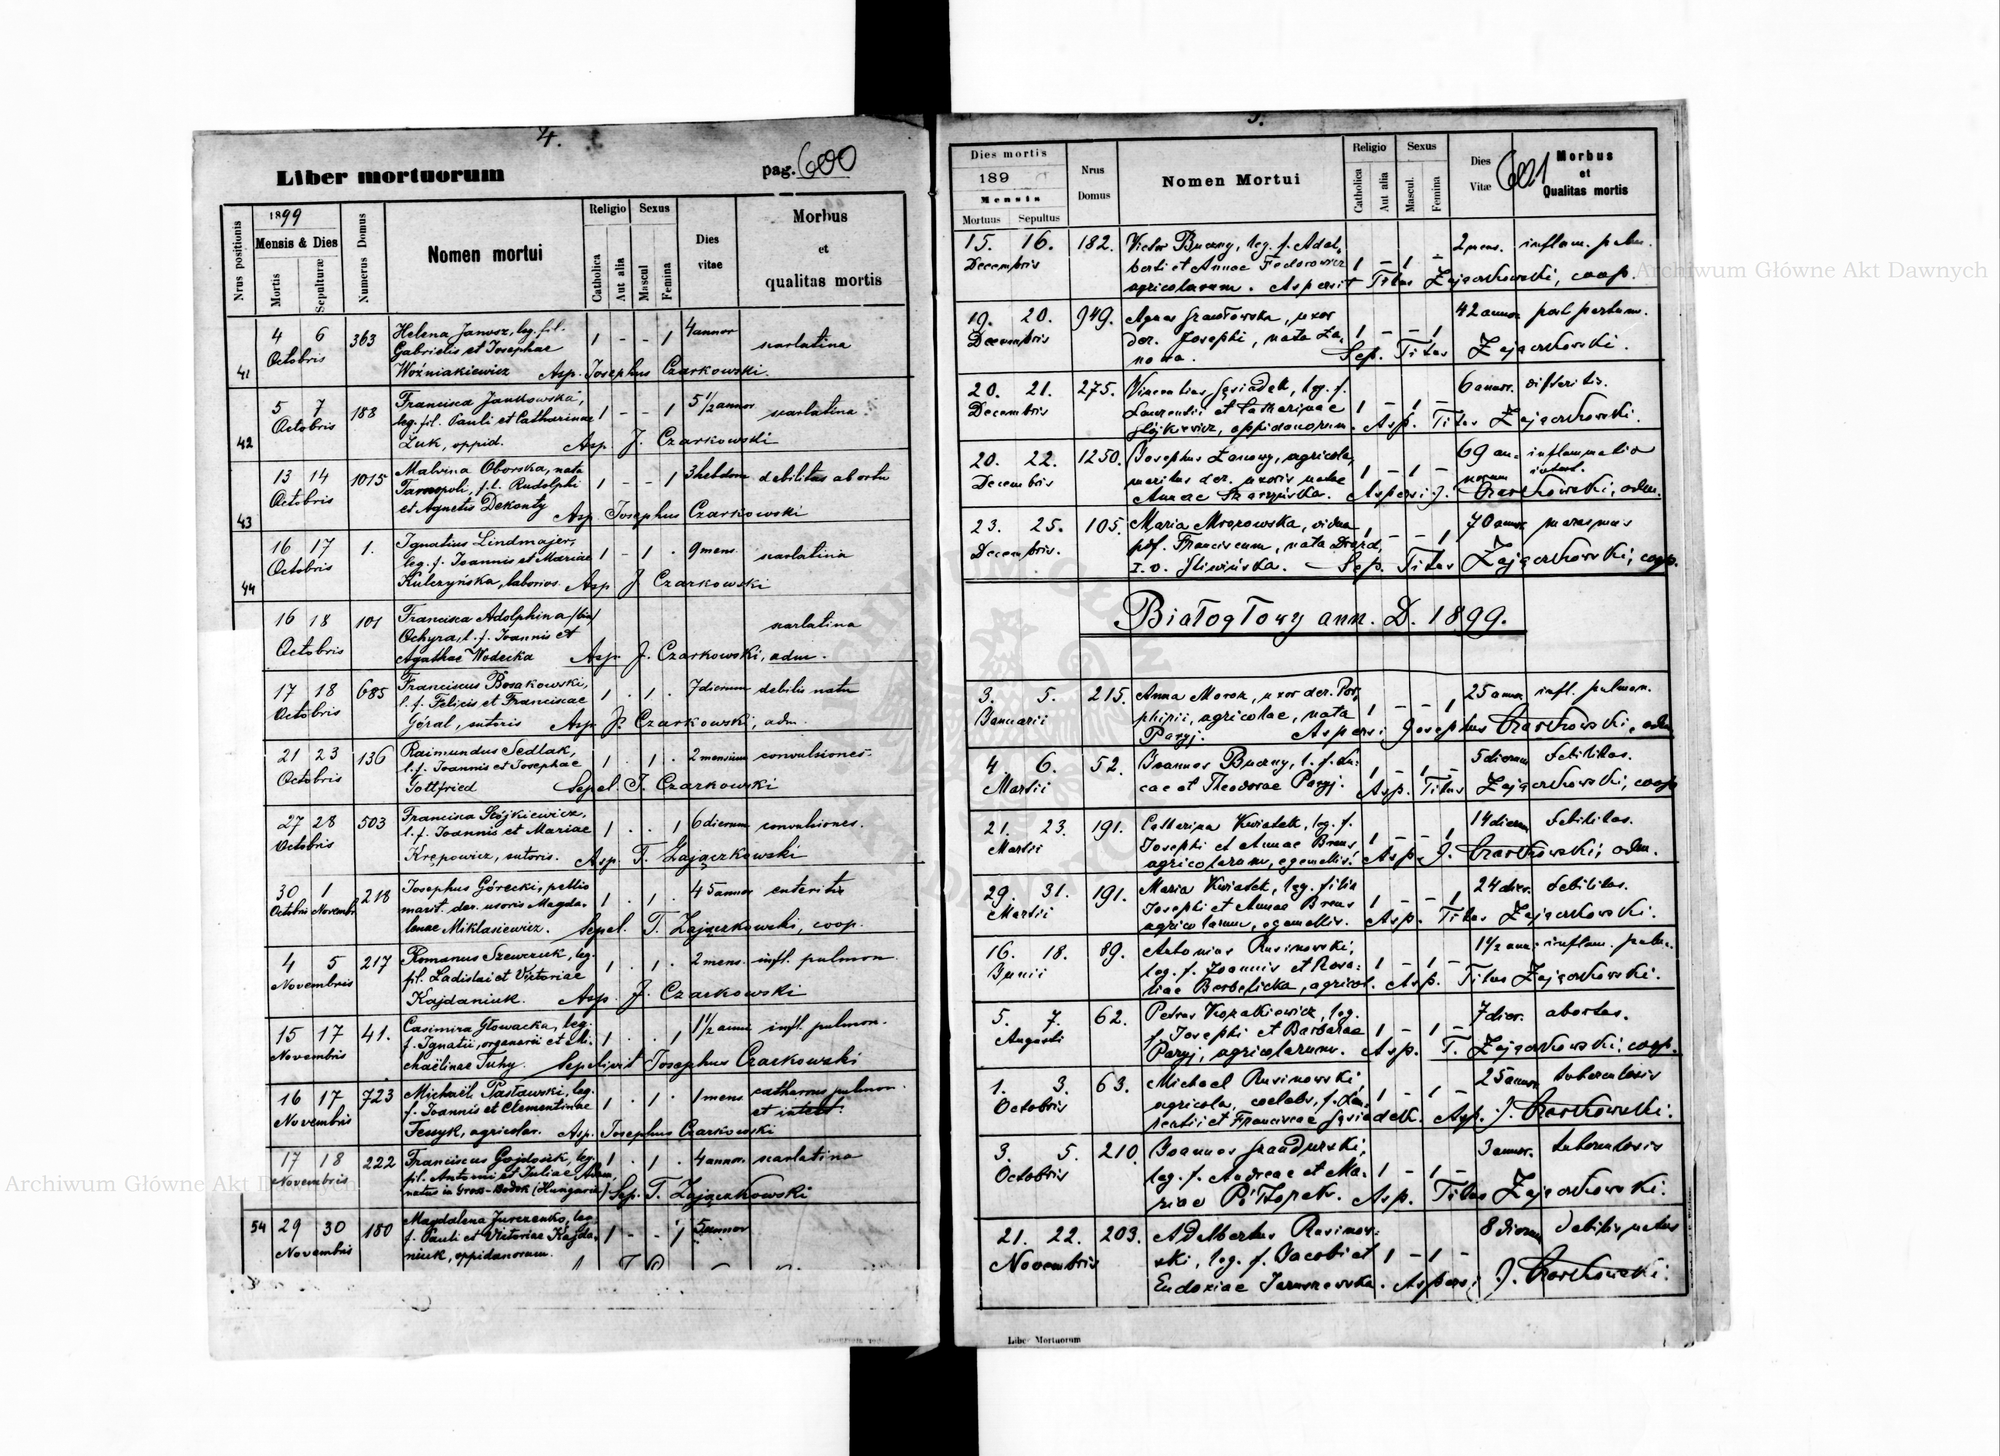 4.
Liber mortuorum
pag. 600
Nrus positionis
1899
Mensis & Dies
Mortis
Sepulturæ
Numerus Domus
Nomen mortui
Religio
Catholica
Aut alia
Sexus
Mascul
Femina
Dies
vitae
Morbus
et
qualitas mortis
41 4 6 363 Helena Janosz, leg. fil. 4 annor
Octobris Gabrielis et Josephae 1 - - 1 scarlatina
Woźniakiewicz Asp. Josephus Czarkowski.
42 5 7 188 Francisca Jankowska, 5 1/2 annor
Octobris leg. fil. Pauli et Catharinae 1 - - 1 scarlatina
Żuk, oppid. Asp. J. Czarkowski
43 13 14 1015 Malvina Oborska, nata 3 hebdom debilitas abortu
Octobris Tarnopoli, f. l. Rudolphi 1 - - 1
et Agnetis Dekonty Asp. Josephus Czarkowski
44 16 17 1. Ignatius Lindmajer,
Octobris leg. f. Joannis et Mariae 1 - 1 . 9 mens. scarlatina
Kulczyńska, laborios. Asp. J. Czarkowski
16 18 101 Francisca Adolphina scarlatina
Octobris Ochyra, l. f. Joannis et
Agathae Wodecka Asp. J. Czarkowski, adm.
17 18 685 Franciscus Bosakowski, 7 dierum debilis natu
Octobris l. f. Felicis et Franciscae 1 . 1 .
Góral, sutoris Asp. J. Czarkowski, adm.
21 23 136 Raimundus Sedlak, 2 mensium convulsiones.
Octobris l. f. Joannis et Josephae 1 . 1 .
Gottfried Sepel. J. Czarkowski
27 28 503 Francisca Stójkiewicz, 6 dierum convulsiones.
Octobris l. f. Joannis et Mariae 1 . . 1
Krępowicz, sutoris. Asp. T. Zajączkowski
30 1 218 Josephus Górecki, pellio 45 annor enteritis
Octobris Novembr marit. der. uxoris Magda- 1 . 1 .
lenae Miklasiewicz. Sepel. T. Zajączkowski, coop.
4 5 217 Romanus Szewczuk, leg. 2 mens. infl. pulmon.
Novembris fil. Ladislai et Victoriae 1 . 1 .
Kajdaniuk. Asp. J. Czarkowski
15 17 41. Casimira Głowacka, leg. 1 1/2 anni infl. pulmon.
Novembris f. Ignatii, organarii et Mi- 1 . . 1
chaëlinae Tuhy. Sepelivit Josephus Czarkowski
16 17 723 Michaël Pasławski, leg. 1 mens. catharrus pulmon.
Novembris f. Joannis et Clementinae 1 . 1 . et intest.
Fessyk, agricolar. Asp. Josephus Czarkowski
17 18 222 Franciscus Gajdosik, leg. 4 annor. scarlatina
Novembris fil. Antonii et Juliae 1 . 1 .
natus in Gross-Bodok (Hungaria) Sep. T. Zajączkowski
54 29 30 180 Magdalena Jurczenko, leg. 5 annor
Novembris f. Pauli et Victoriae Kajda- 1 - - 1
niuk, oppidanorum.
5.
Dies mortis
189
Mensis
Mortuus
Sepultus
Nrus
Domus
Nomen Mortui
Religio
Catholica
Aut alia
Sexus
Mascul.
Femina
Dies
Vitæ
601
Morbus
et
Qualitas mortis
15. 16. 182. Victor Buczny, leg. f. Adal- 2 mens. inflam. pulm.
Decembris berti et Annae Fedorowicz 1 - 1 -
agricolarum. Aspersit Titus Zajączkowski, coop.
19. 20. 949. Agnes 42 annor post partum.
Decembris der. Josephi, nata Ża- 1 - - 1
nowa. Sep. Titus Zajączkowski.
20. 21. 275. Vincentius Gąsiadek, leg. f. 6 annor. difteritis.
Decembris Laurentii et Catharinae 1 - 1 -
Stójkiewicz, oppidanorum. Asp. Titus Zajączkowski.
20. 22. 1250. Josephus Żanowy, agricola, 69 an- inflammatio
Decembris maritus der. uxoris natae 1 - 1 - norum intest.
Annae Skarzyńska. Aspersi J. Czarkowski, adm.
23. 25. 105. Maria Mrozowska, vidua 70 annor marasmus
Decembris. post Franciscum, nata Drozd, 1 - - 1
I. v. Śliwińska. Sep. Titus Zajączkowski, coop.
Białogłowy ann. D. 1899.
3. 5. 215. Anna Moroz, uxor der. Por- 25 annor infl. pulmon.
Januarii phirii, agricolae, nata 1 - - 1
Paryj. Aspersi Josephus Czarkowski, adm
4. 6. 52. Joannes Buczny, l. f. Lu- 5 dierum debilitas.
Martii cae et Theodorae Paryj. 1 - 1 - Asp. Titus Zajączkowski, coop
21. 23. 191. Catharina Kwiatek, leg. f. 14 dierum debilitas.
Martii Josephi et Annae Brens 1 - - 1
agricolarum, e gemellis. Asp. J. Czarkowski, adm.
29. 31. 191. Maria Kwiatek, leg. filia 24 dier. debilitas.
Martii Josephi et Annae Brens 1 - - 1
agricolarum, e gemellis. Asp. Titus Zajączkowski.
16. 18. 89. Antonius Rusinowski, 1 1/2 ann. inflam. pulm.
Junii leg. f. Joannis et Rosa- 1 - 1 -
liae Berbelicka, agricol. Asp. Titus Zajączkowski.
5. 7. 62. Petrus Kopatkiewicz, leg. 7 dier. abortus.
Augusti f. Josephi et Barbarae 1 - 1 -
Paryj, agricolarum. Asp. T. Zajączkowski, coop.
1. 3. 63. Michael Rusinowski, 25 annor tuberculosis
Octobris agricola, caelebs, f. Lau- 1 - 1 -
rentii et Franciscae Gąsiadek. Asp. J. Czarkowski.
3. 5. 210. Joannes Grandurski, 3 annor. tuberculosis
Octobris leg. f. Andreae et Ma- 1 - 1 -
riae Półtopek. Asp. Titus Zajączkowski.
21. 22. 203. Adalbertus Rusinow- 8 dierum debilis natus
Novembris ski, leg. f. Jacobi et 1 - 1 -
Eudoxiae Jaruszewska. Aspersi J. Czarkowski.
Liber Mortuorum
Archiwum Główne Akt Dawnych
Archiwum Główne Akt Dawnych